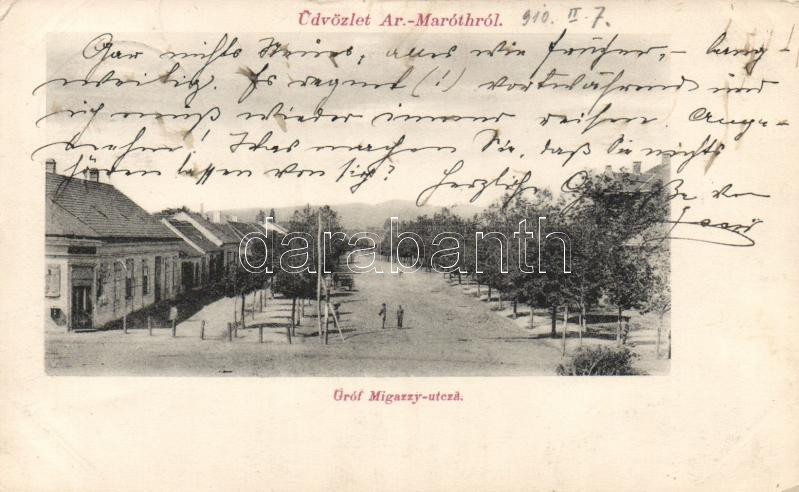 Üdvözlet Ar.-Maróthról. 910. II. 7.
Gar nichts Neues, alles wie früher, – lang-
weilig. Es regnet (!) fortwährend und
ich muß wieder immer reisen. Ange-
nehm! Was machen Sie, daß Sie nichts
hören lassen von sich? Herzliche Grüße von
darabanth.com
Gróf Migazzy-utcza.